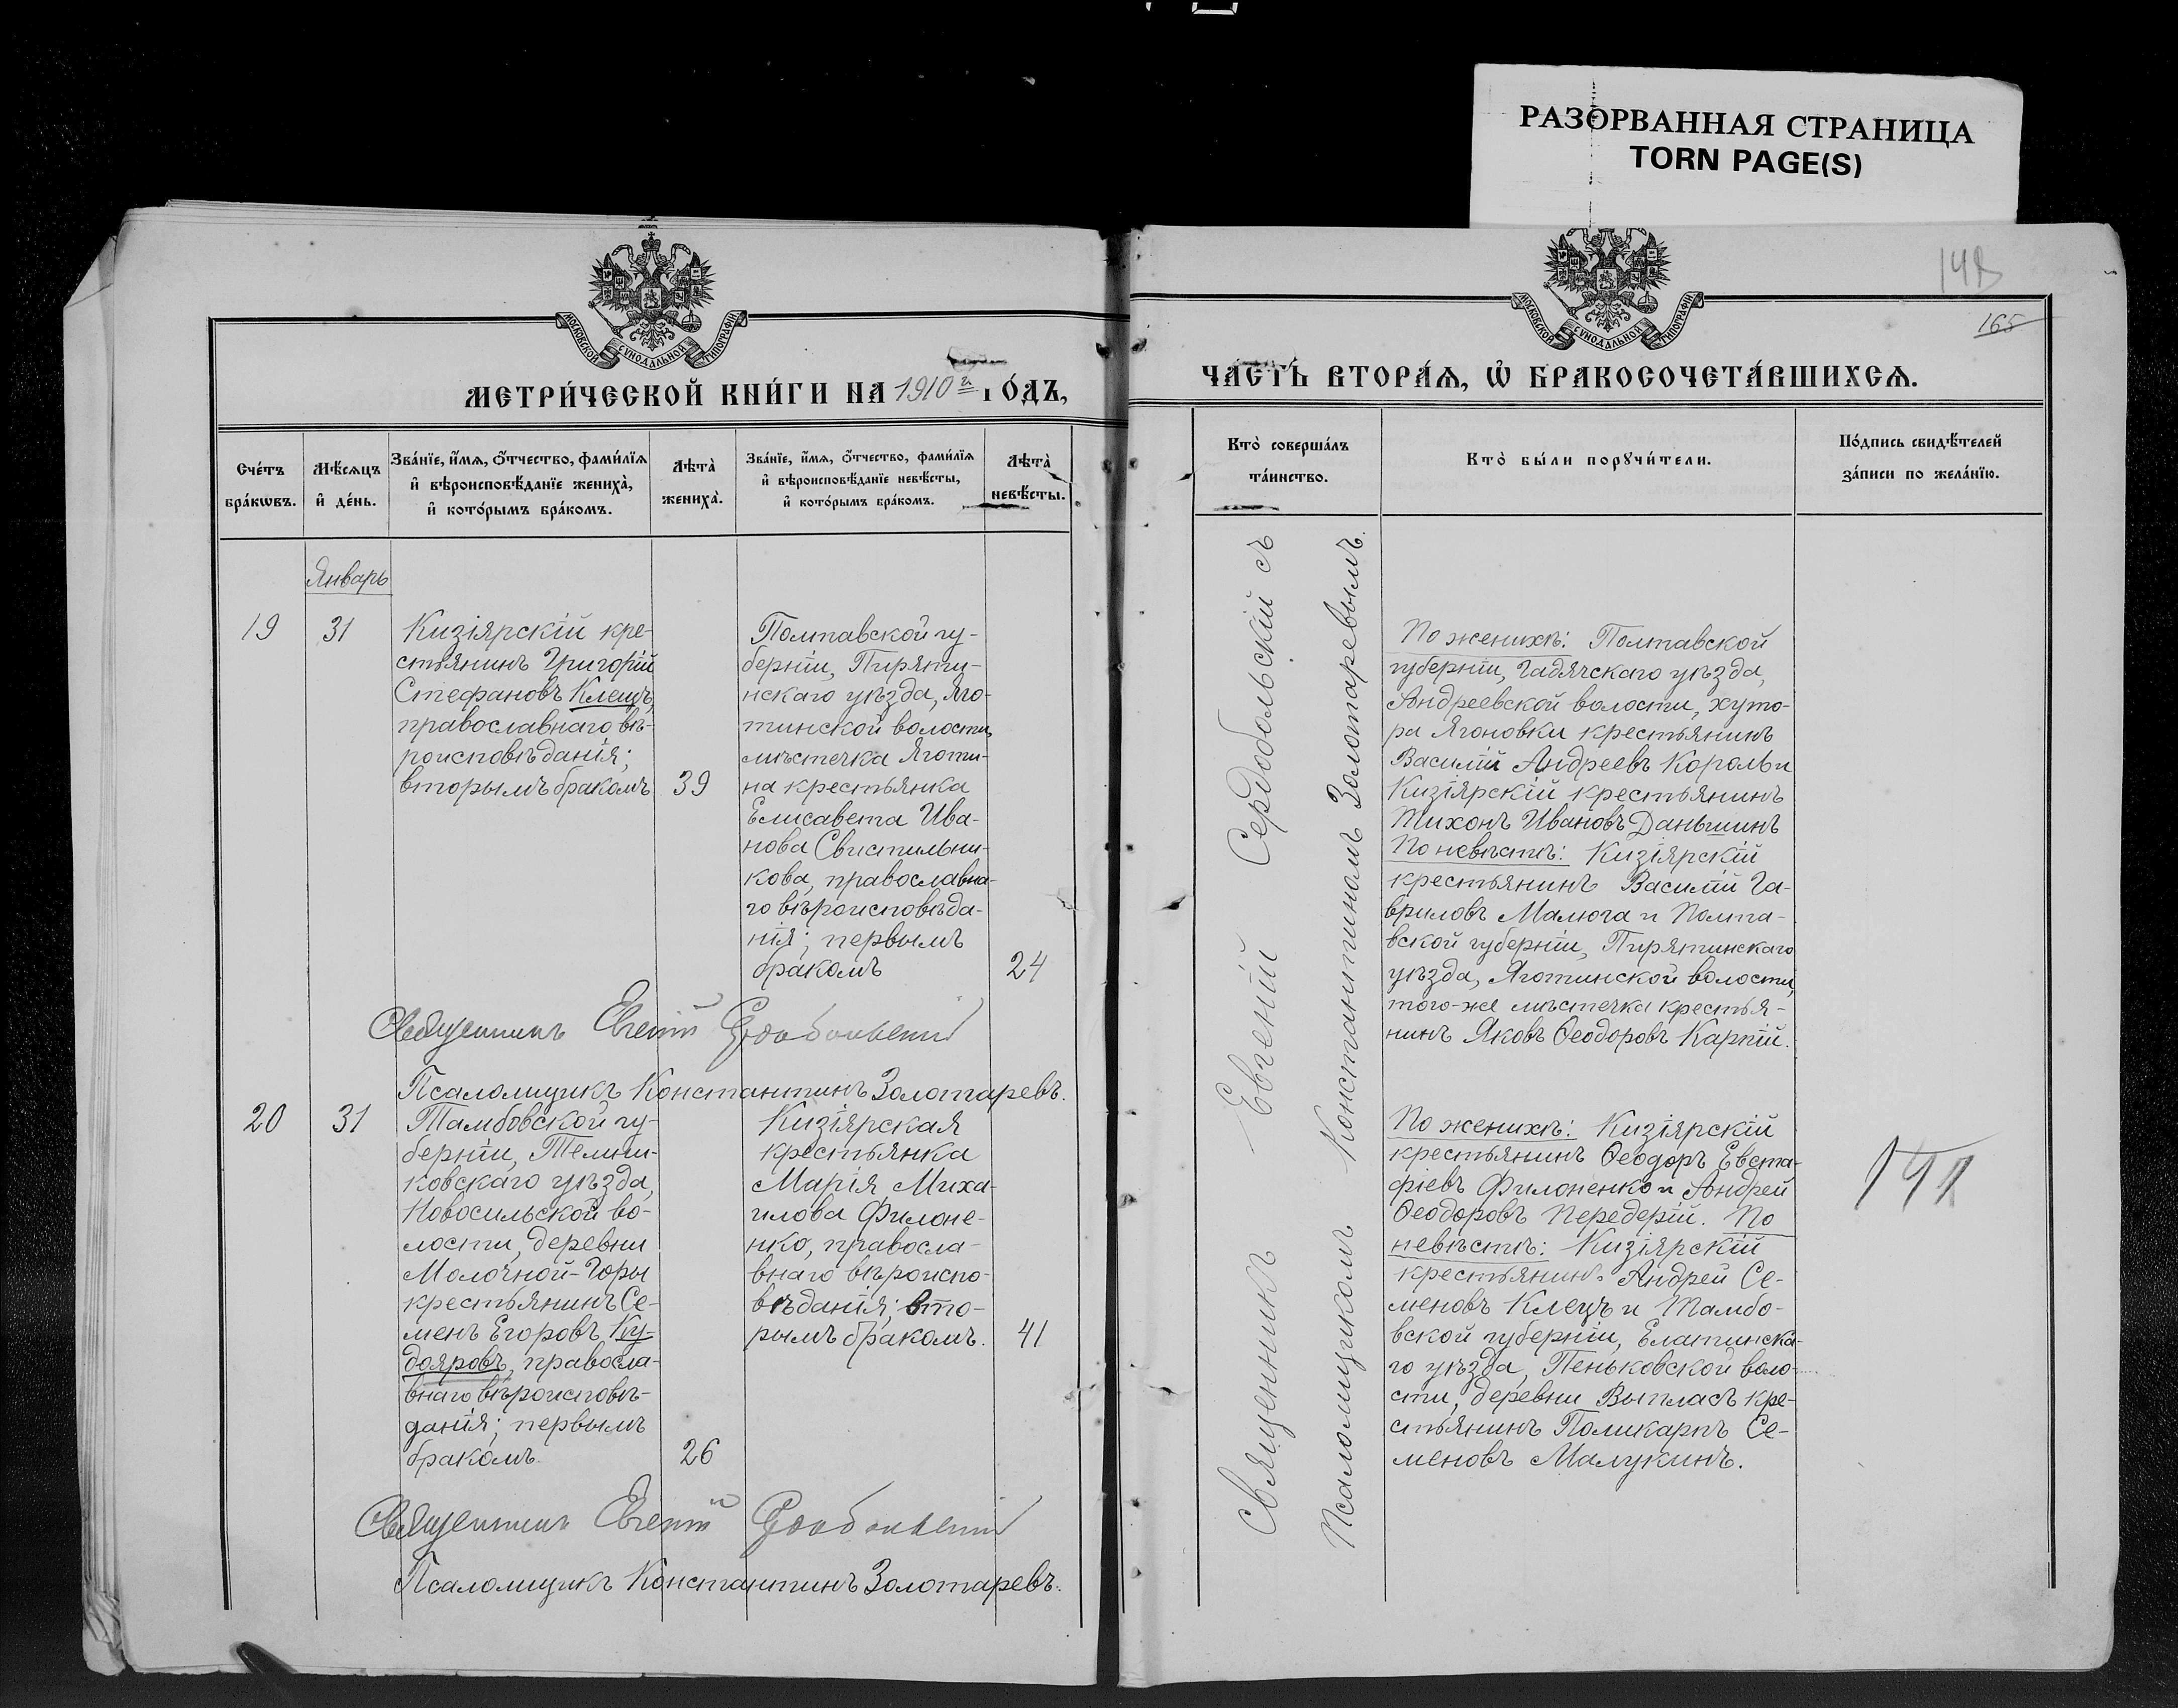 РАЗОРВАННАЯ СТРАНИЦА
TORN PAGE(S)
МОСКОВСКОЙ СѴНОДАЛЬНОЙ ТИПОГРАФІИ
МЕТРИ́ЧЕСКОЙ КНИ́ГИ НА 1910й ГО́ДЪ,
Сче́тъ
бра́кωвъ.
Мѣ́сяцъ
и҆ де́нь.
Зва́нїе, и҆́мѧ, ѻ҆́тчество, фами́лїѧ
и҆ вѣроисповѣ́данїе жениха̀,
и҆ кото́рымъ бра́комъ.
Лѣта̀
жениха̀.
Зва́нїе, и҆́мѧ, ѻ҆́тчество, фами́лїѧ
и҆ вѣроисповѣ́данїе невѣ́сты,
и҆ кото́рымъ бра́комъ.
Лѣта̀
невѣ́сты.
Январь
19
31
Кизіярскій кре-
стьянинъ Григорій
Стефановъ Клецъ,
православнаго вѣ-
роисповѣданія;
вторымъ бракомъ
39
Полтавской гу-
берніи, Пиряти-
нскаго уѣзда, Яго-
тинской волости,
мѣстечка Яготи-
на крестьянка
Елисавета Ива-
нова Свистильни-
кова, православна-
го вѣроисповѣда-
нія; первымъ
бракомъ
24
Священникъ Евгеній Сердобольскій
Псаломщикъ Константинъ Золотаревъ.
20
31
Тамбовской гу-
берніи, Темни-
ковскаго уѣзда,
Новосильской во-
лости, деревни
Молочной-Горы
крестьянинъ Се-
менъ Егоровъ Ку-
дояровъ, правосла-
внаго вѣроисповѣ-
данія; первымъ
бракомъ
26
Кизіярская
крестьянка
Марія Миха-
илова Филоне-
нко, правосла-
внаго вѣроиспо-
вѣданія; вто-
рымъ бракомъ.
41
Священникъ Евгеній Сердобольскій
Псаломщикъ Константинъ Золотаревъ.
165
МОСКОВСКОЙ СѴНОДАЛЬНОЙ ТИПОГРАФІИ
ЧА́СТЬ ВТОРА́Ѧ, Ѽ БРАКОСОЧЕТА́ВШИХСѦ.
Кто̀ соверша́лъ
та́инство.
Кто̀ бы́ли порꙋчи́тели.
По́дпись свидѣ́телей
за́писи по жела́нїю.
Священникъ Евгеній Сердобольскій съ
Псаломщикомъ Константиномъ Золотаревымъ.
По женихѣ: Полтавской
губерніи, Гадячскаго уѣзда,
Андреевской волости, хуто-
ра Ягоновки крестьянинъ
Василій Андреевъ Король и
Кизіярскій крестьянинъ
Тихонъ Ивановъ Даньшинъ
По невѣстѣ: Кизіярскій
крестьянинъ Василій Га-
вриловъ Малюга и Полта-
вской губерніи, Пирятинскаго
уѣзда, Яготинской волости,
того-же мѣстечка крестья-
нинъ Яковъ Ѳеодоровъ Карпій.
По женихѣ: Кизіярскій
крестьянинъ Ѳеодоръ Евста-
фіевъ Филоненко и Андрей
Ѳеодоровъ Передерій. По
невѣстѣ: Кизіярскій
крестьянинъ Андрей Се-
меновъ Клецъ и Тамбо-
вской губерніи, Елатинска-
го уѣзда, Пеньковской воло-
сти, деревни Выпласъ кре-
стьянинъ Поликарпъ Се-
меновъ Малукинъ.